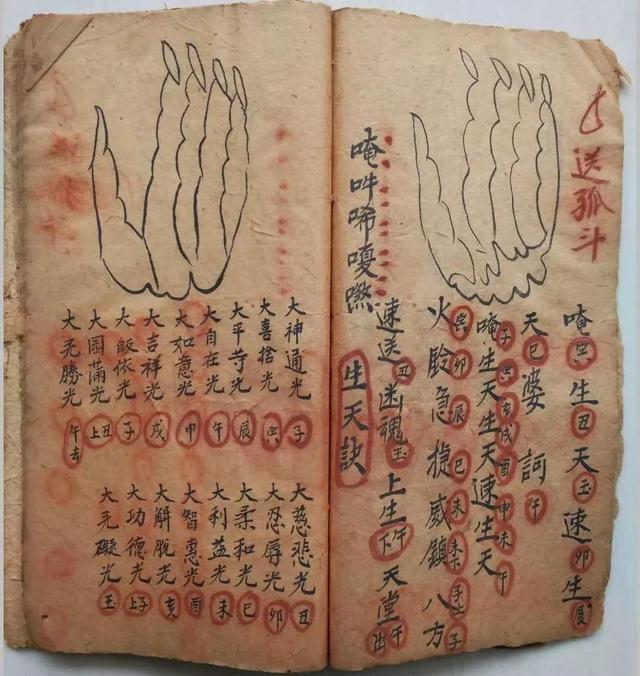 送孤斗
唵生丑天玉速卯生辰
天巳婆訶午
唵生天生天速生天
子亥戌酉申未午
火睑急捷威鎮八方
卯辰巳未子
速送丑幽魂玉上生午下天堂午
生天訣
唵吽唏嗄
大神通光子
大喜捨光
大平等光辰
大自在光午
大如意光申
大吉祥光戌
大皈依光子
大园滿光丑上
大无勝光午去
大慈悲光丑
大忍辱光卯
大柔和光巳
大利益光未
大智惠光酉
大解脫光亥
大功德光子上
大无礙光玉